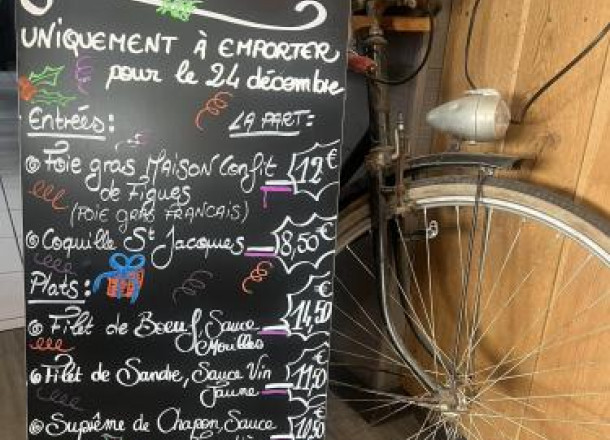 UNIQUEMENT À EMPORTER
pour le 24 décembre
Entrées: LA PART:
Foie gras MAISON Confit de Figues 12€
(FOIE GRAS FRANCAIS)
Coquille St Jacques 8,50€
Plats:
Filet de Boeuf, Sauce Morilles 14,50€
Filet de Sandre, Sauce Vin Jaune 11,50€
Suprême de Chapon, Sauce 10,50